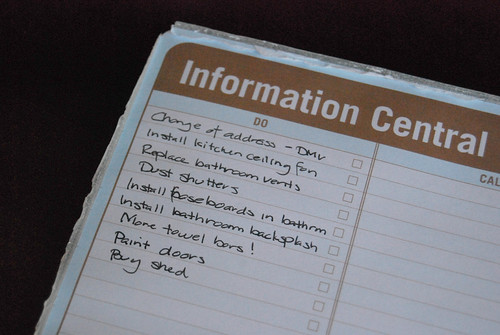 Information Central
DO
CAL
Change of address - DMV
Install kitchen ceiling fan
Replace bathroom vents
Dust shutters
Install baseboards in bathrm
Install bathroom backsplash
More towel bars!
Paint doors
Buy shed